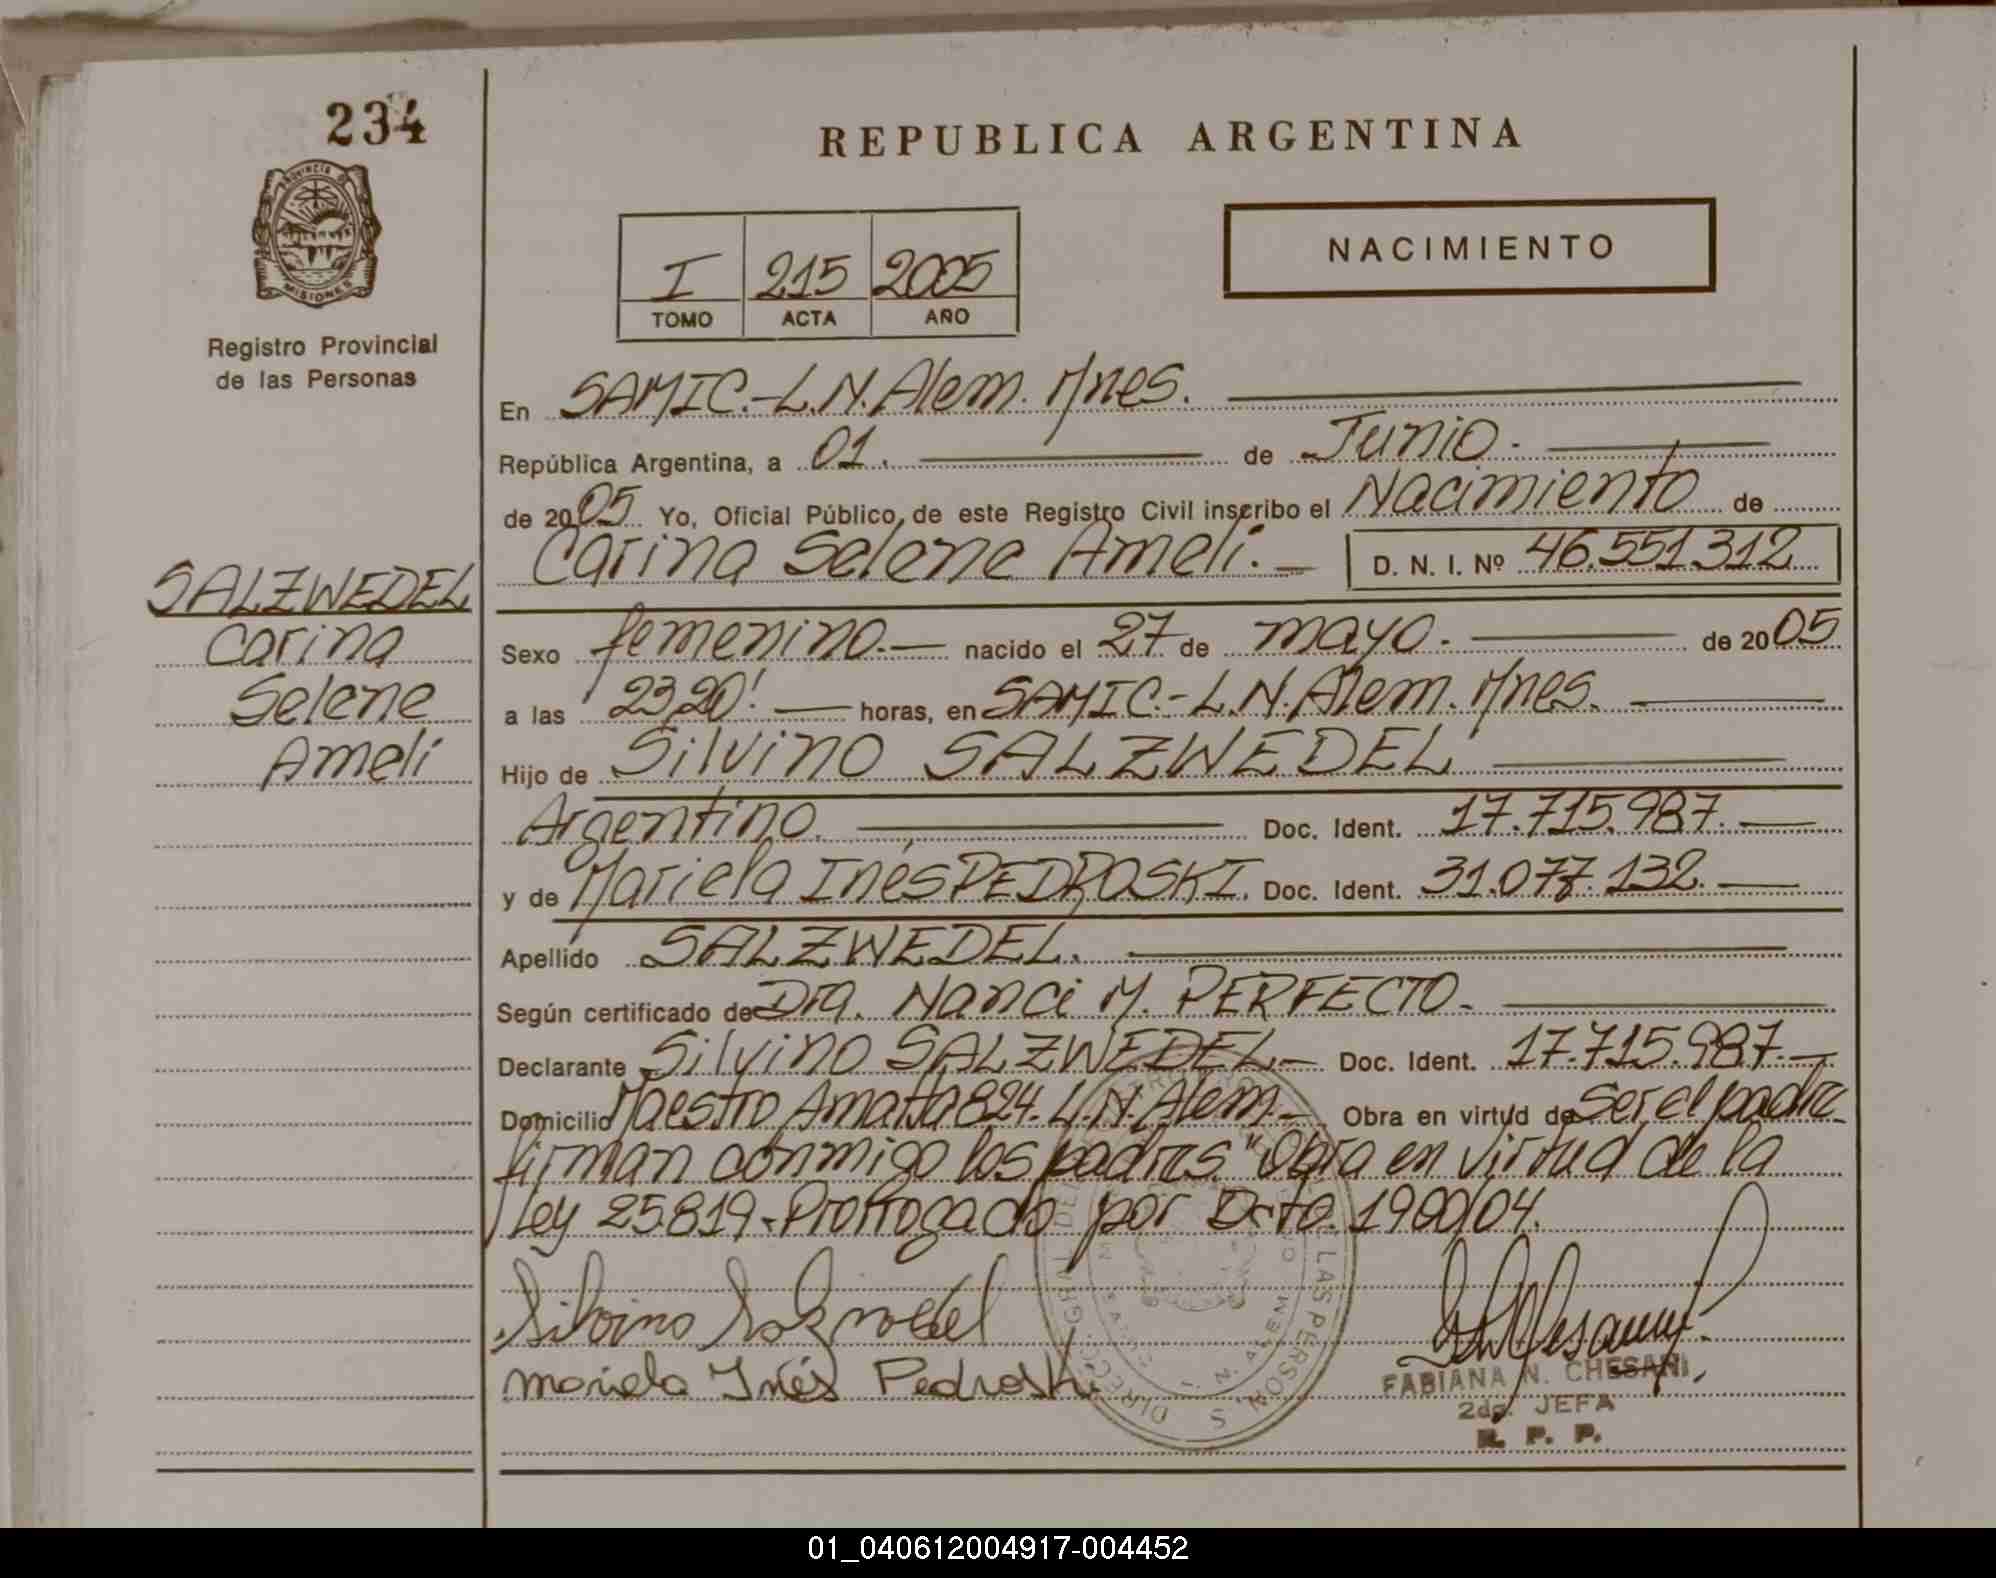 234
REPUBLICA ARGENTINA
PROVINCIA DE
MISIONES
I 215 2005
TOMO ACTA AÑO
NACIMIENTO
Registro Provincial
de las Personas
En SAMIC.-L.N.Alem. Mnes.
República Argentina, a 01. de Junio.
de 2005 Yo, Oficial Público de este Registro Civil inscribo el Nacimiento de
Carina Selene Ameli.- D. N. I. Nº 46.551.312
SALZWEDEL
Carina
Selene
Ameli
Sexo femenino.- nacido el 27 de mayo. de 2005
a las 23,20'. horas, en SAMIC.-L.N.Alem. Mnes.
Hijo de Silvino SALZWEDEL
Argentino. Doc. Ident. 17.715.987.
y de Mariela Inés PEDROSKI. Doc. Ident. 31.077.132.
Apellido SALZWEDEL.
Según certificado de Dra. Nanci M. PERFECTO.
Declarante Silvino SALZWEDEL.- Doc. Ident. 17.715.987.-
Domicilio Maestro Amatta 824. L.N.Alem.- Obra en virtud de ser el padre
firman conmigo los padres. "Obra en virtud de la
Ley 25819.-Prorrogado por Dcto. 1900/04.
Silvino Salzwedel
Mariela Inés Pedroski
FABIANA N. CHESANI
2da. JEFA
R. P. P.
01_040612004917-004452